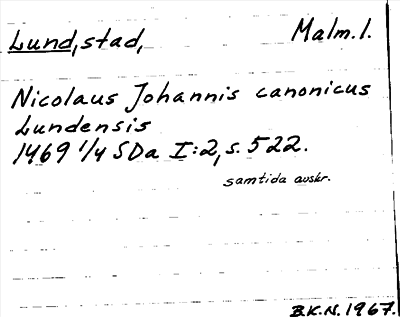 Lund, stad, Malm. l.
Nicolaus Johannis canonicus
Lundensis
1469 1/4 SDa I:2, s. 522.
samtida avskr.
B.K.N. 1967.